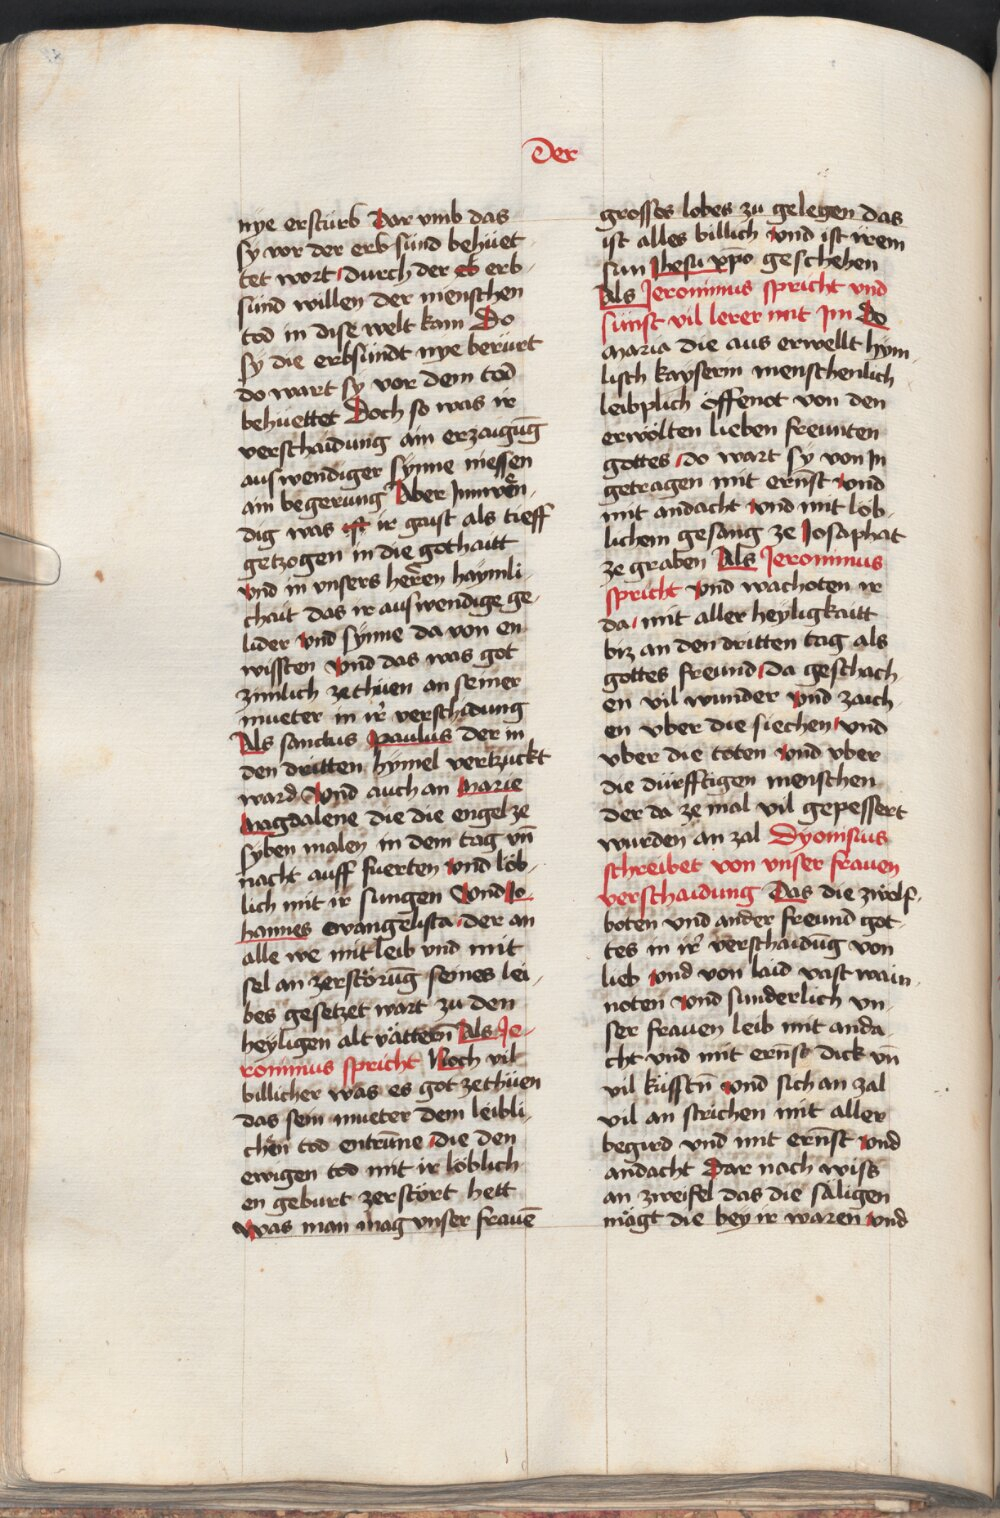 Der
nye erstürb Dar vmb das
sy vor der erb sünd behüet
tet wort durch der eb erb-
sünd willen der menschen
tod in dise welt kam Do
sy die erbsündt nye berürt
do wart sy vor dem tod
behüettet Doch so was ir
verschaidung ain erzaigūg
auswendiger synne niessen
ain begerung Aber Innwēn-
dig was ist ir gaist als tieff
getzogen in die gothaitt
vnd in vnsers herren haymli-
chait das ir auswendige ge-
lider vnd synne da von en
wissten vnd das was got
zimlich ze thüen an seiner
mueter in ir verschidung
Als sanctus paulus der in
den dritten hymel vertzuckt
ward Vnd auch an Marie
Magdalene die die engel ze
syben malen in dem tag vn̄
nacht auff fuerten vnd löb-
lich mit ir sungen Vnd Jo-
hannes ewangelista der an
alle we mit leib vnd mit
sel an zerstörūg seines lei-
bes gesetzet wart zu den
heyligen alt vättern Als Je-
ronimus spricht Noch vil
billicher was es got ze thüen
das sein mueter dem leibli-
chen tod entrūne die den
ewigen tod mit ir löblich
en geburt zerstört hett
Was man mag vnser frauē
grosses lobes zu gelegen das
ist alles billich vnd ist irem
sun Jhesu xp̄o geschehen
Als Jeronimus spricht vnd
sünst vil lerer mit Im Do
Maria die aus erwellt hym-
lisch kayserin menschenlich
leibplich öffenot von den
erwölten lieben freunten
gottes do wart sy von In
getragen mit ernst vnd
mit andacht vnd mit löb-
lichem gesang ze Josaphat
ze graben Als Jeronimus
spricht vnd wachoten ir
da mit aller heyligkaitt
biz an den dritten tag als
gottes freund da geschach
en vil wunder vnd zaich-
en vber die siechen vnd
vber die toten vnd vber
die dürfftigen menschen
der da ze mal vil gepessert
wurden an zal Dyonisius
schreibet von vnser frauen
verschaidung Das die zwelf-
boten vnd ander freund got-
tes in ir verschaidūg von
lieb vnd von laid vast wain-
noten vnd sunderlich vn-
ser frauen leib mit anda-
cht vnd mit ernst dick vn̄
vil küsstn̄ vnd sich an zal
vil an strichen mit aller
begird vnd mit ernst vnd
andacht Dar nach wiss
an zweifel das die säligen
mägt die bey ir waren vnd